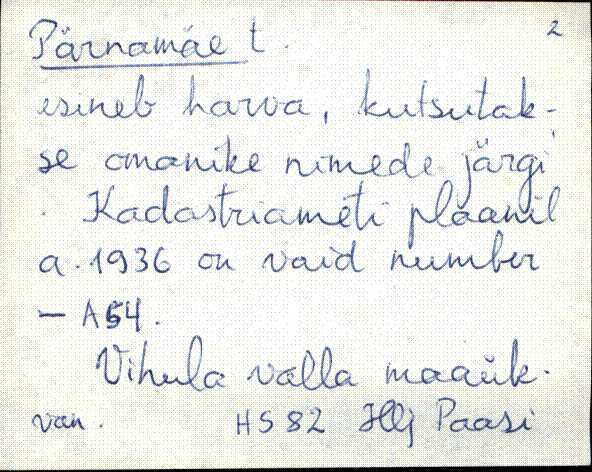 2
Pärnamäe t.
esineb harva, kutsutak-
se omanike nimede järgi
. Kadastriameti plaanil
a. 1936 on vaid number
– A54.
Vihula valla maaük.
van. HS 82 Paasi